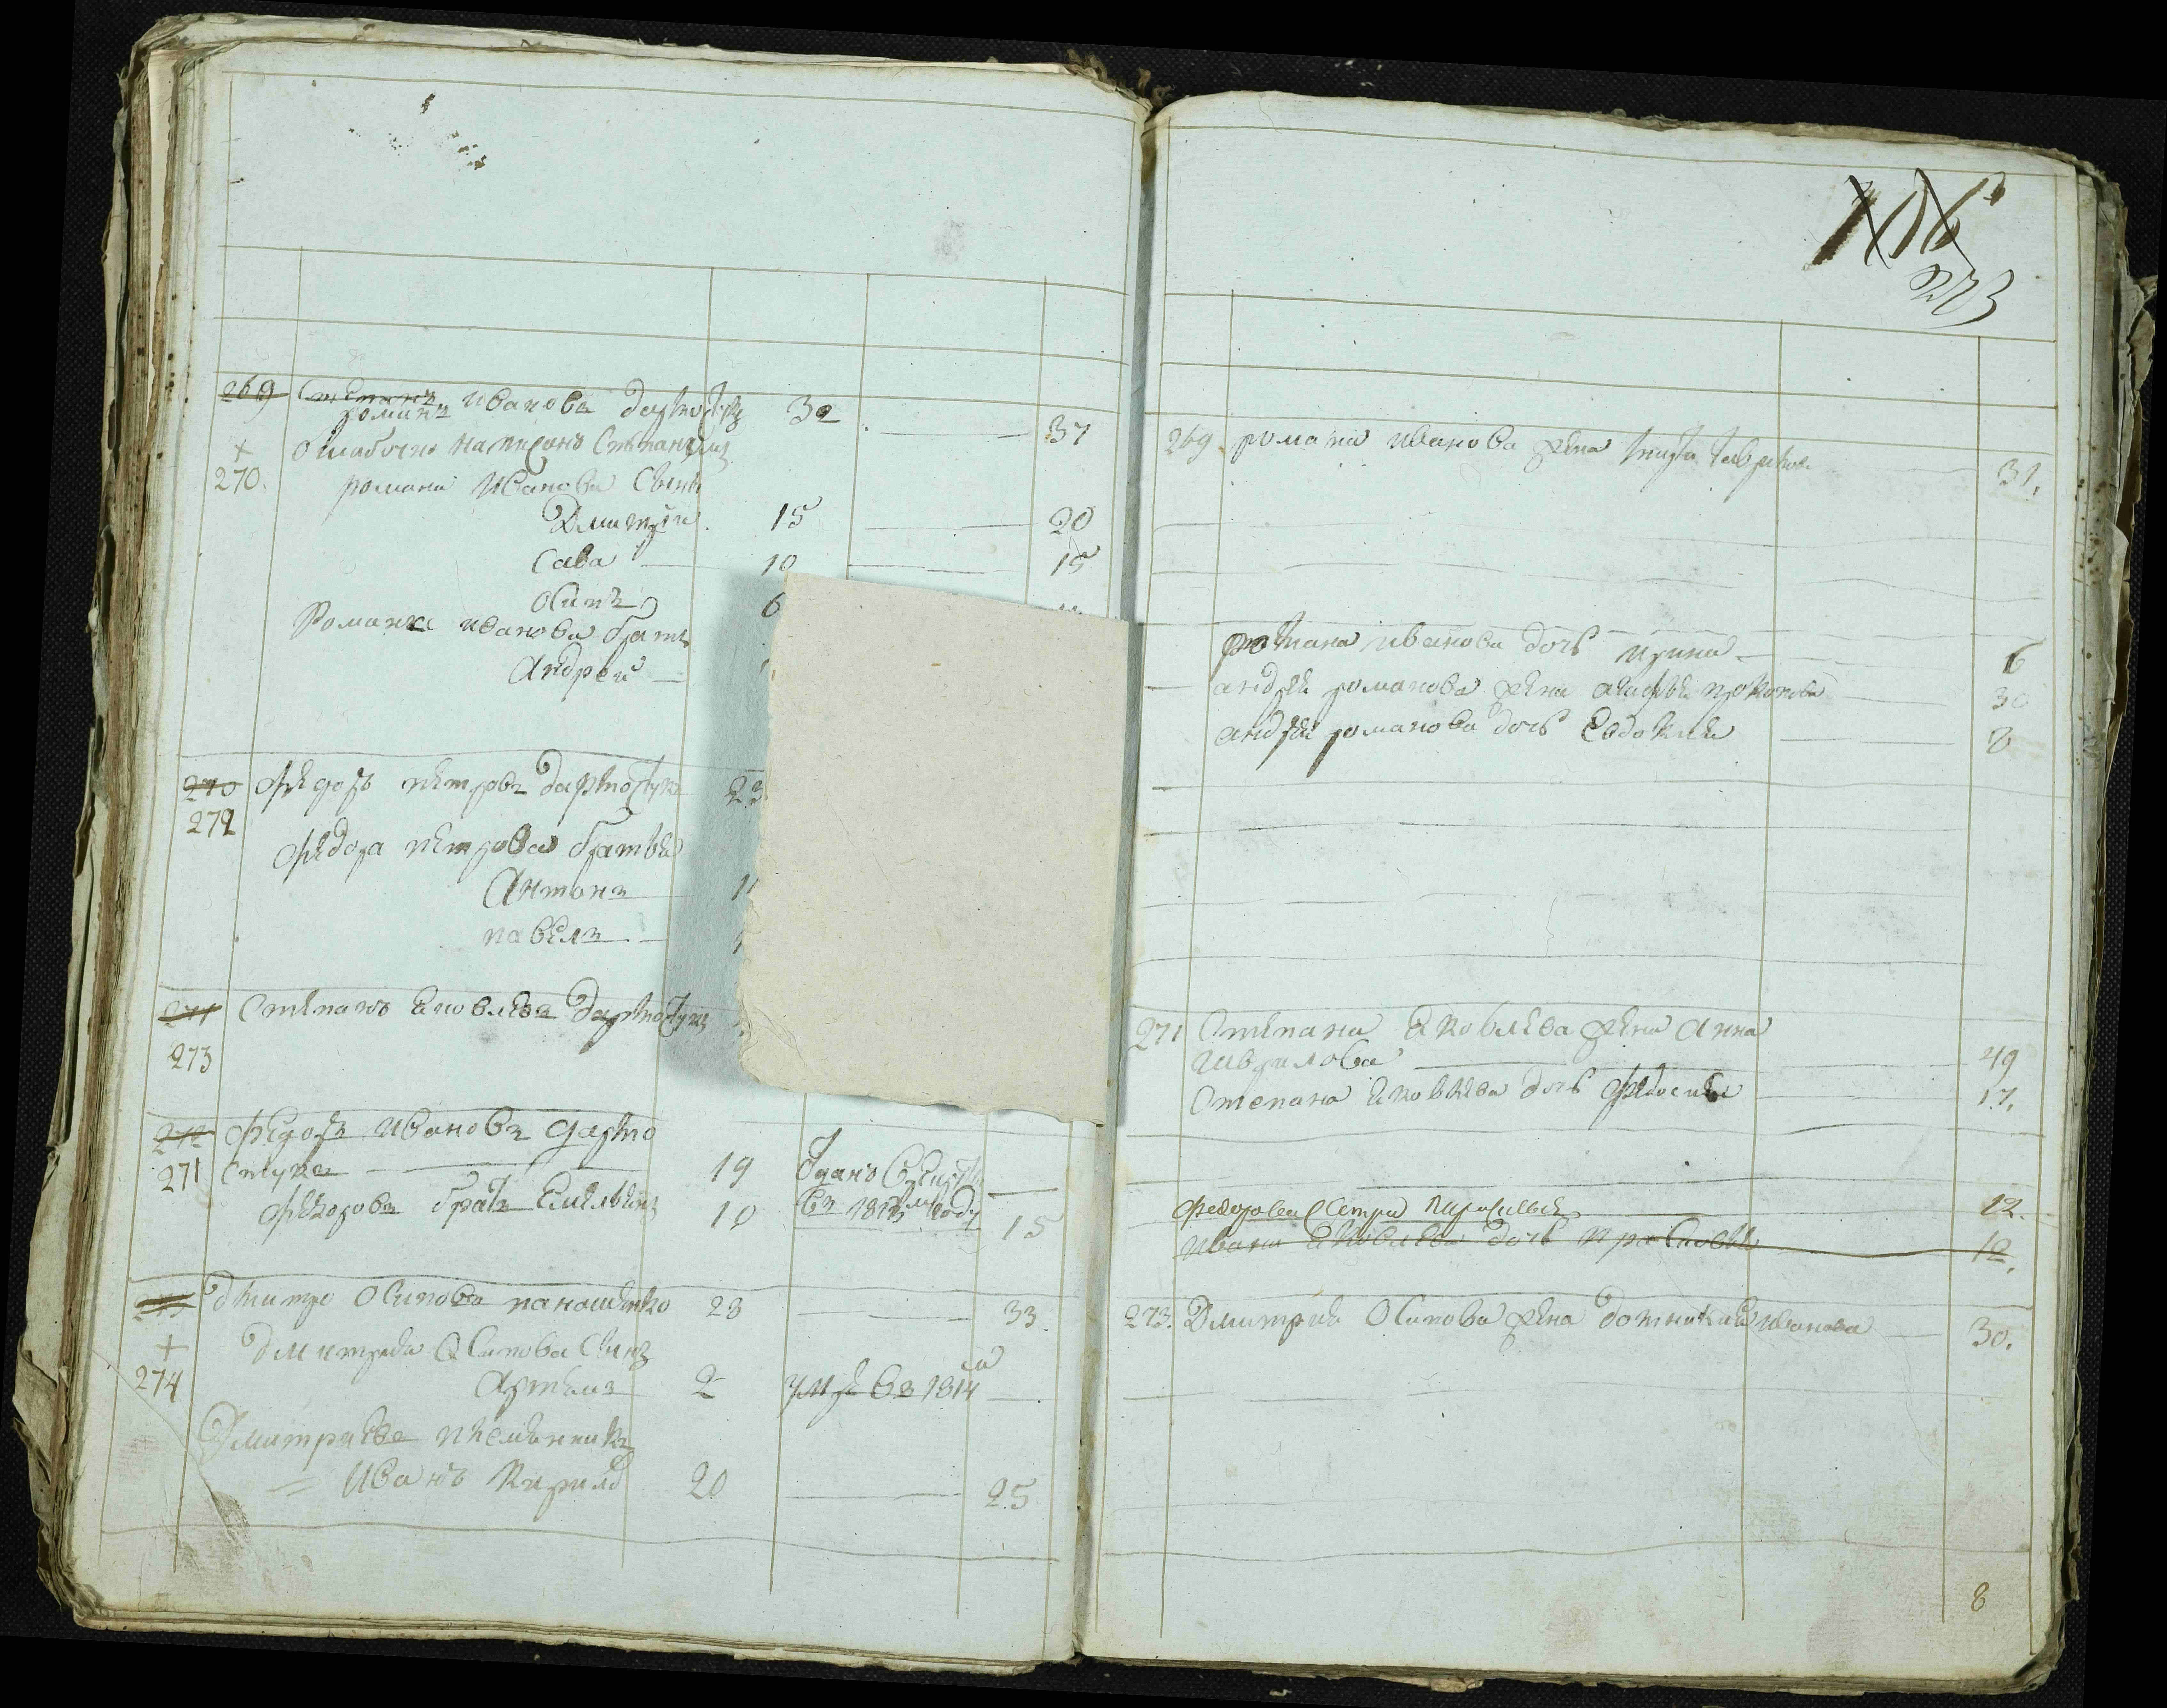 269 Степанъ
Романъ Ивановъ Дартостукъ 32 — 37
+ Ошибочно написанъ Степаномъ
270. Романа Иванова сынъ
Дмитрей. 15 — 20
Сава — 10 — 15
Осипъ 6
Романа Иванова братъ
Андрей —
270 Федоръ Петровъ Дартостукъ 23
272
Федора Петрова братья
Антонъ
Павелъ —
271 Степанъ Яковлевъ Дартостукъ
273
272 Федоръ Ивановъ Дарто
271 стукъ — 19 —
Федоровъ братъ Емельянъ 10 году 15
Дмитро Осиповъ Паношенко 28 — 33
+ Дмитрея Осипова сынъ
274 Артемъ 2 умре въ 1814м —
Дмитриевъ племянникъ
= Иванъ Кирилъ 20 — 25
273
269. Романа Иванова жена 31.
Романа Иванова дочь Ирина — 6
Андрея Романова жена Прокопова — 30
Андрея Романова дочь Евдокия — 8
271 Степана Яковлева жена Анна
Гаврилова — 49
Степана Яковлева дочь Федосия — 17.
Федорова сестра 12.
Ивана Яковлева дочь Прасковья 12.
273. Дмитрия Осипова жена Домникия Иванова — 30.
8